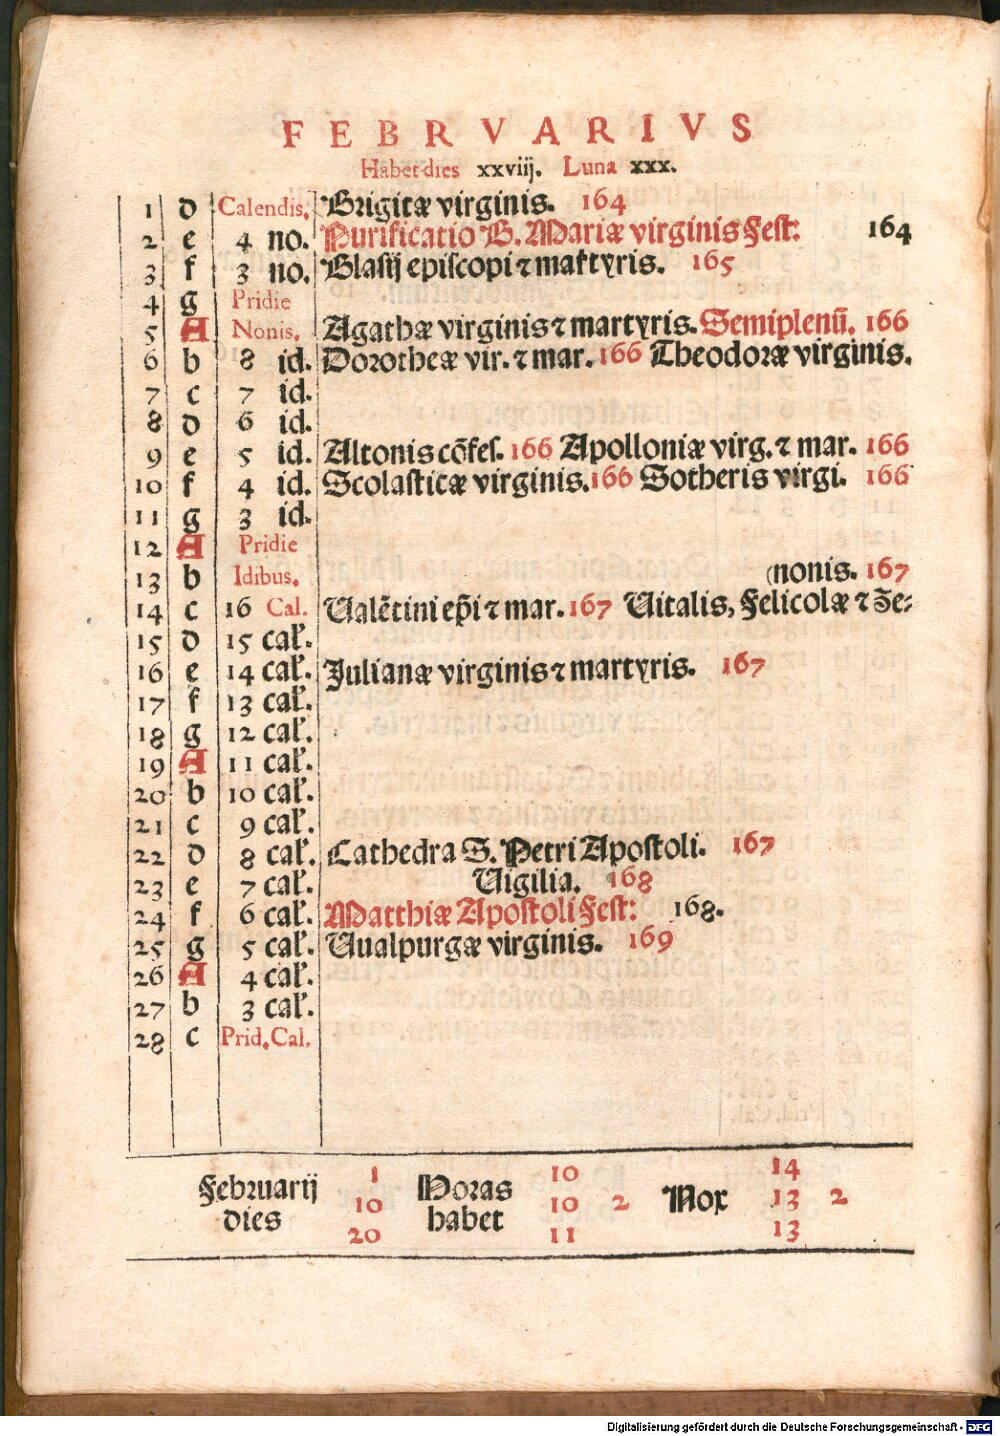 FEBRVARIVS
Habet dies xxviij. Luna xxx.
1 d Calendis. Brigitæ virginis. 164
2 e 4 no. Purificatio B. Mariæ virginis Fest: 164
3 f 3 no. Blasij episcopi ⁊ martyris. 165
4 g Pridie
5 A Nonis. Agathæ virginis ⁊ martyris. Semiplenū. 166
6 b 8 id. Dorotheæ vir. ⁊ mar. 166 Theodoræ virginis.
7 c 7 id.
8 d 6 id.
9 e 5 id. Altonis cōfes. 166 Apolloniæ virg. ⁊ mar. 166
10 f 4 id. Scolasticæ virginis. 166 Sotheris virgi. 166
11 g 3 id.
12 A Pridie
13 b Idibus. (nonis. 167
14 c 16 Cal. Valētini ep̄i ⁊ mar. 167 Vitalis, Felicolæ ⁊ Ze-
15 d 15 cal.
16 e 14 cal. Julianæ virginis ⁊ martyris. 167
17 f 13 cal.
18 g 12 cal.
19 A 11 cal.
20 b 10 cal.
21 c 9 cal.
22 d 8 cal. Cathedra S. Petri Apostoli. 167
23 e 7 cal. Vigilia. 168
24 f 6 cal. Matthiæ Apostoli Fest: 168.
25 g 5 cal. Vualpurgæ virginis. 169
26 A 4 cal.
27 b 3 cal.
28 c Prid. Cal.
Februarij dies 1 10 20
Horas habet 10 10 2 11
Nox 14 13 2 13
Digitalisierung gefördert durch die Deutsche Forschungsgemeinschaft - DFG